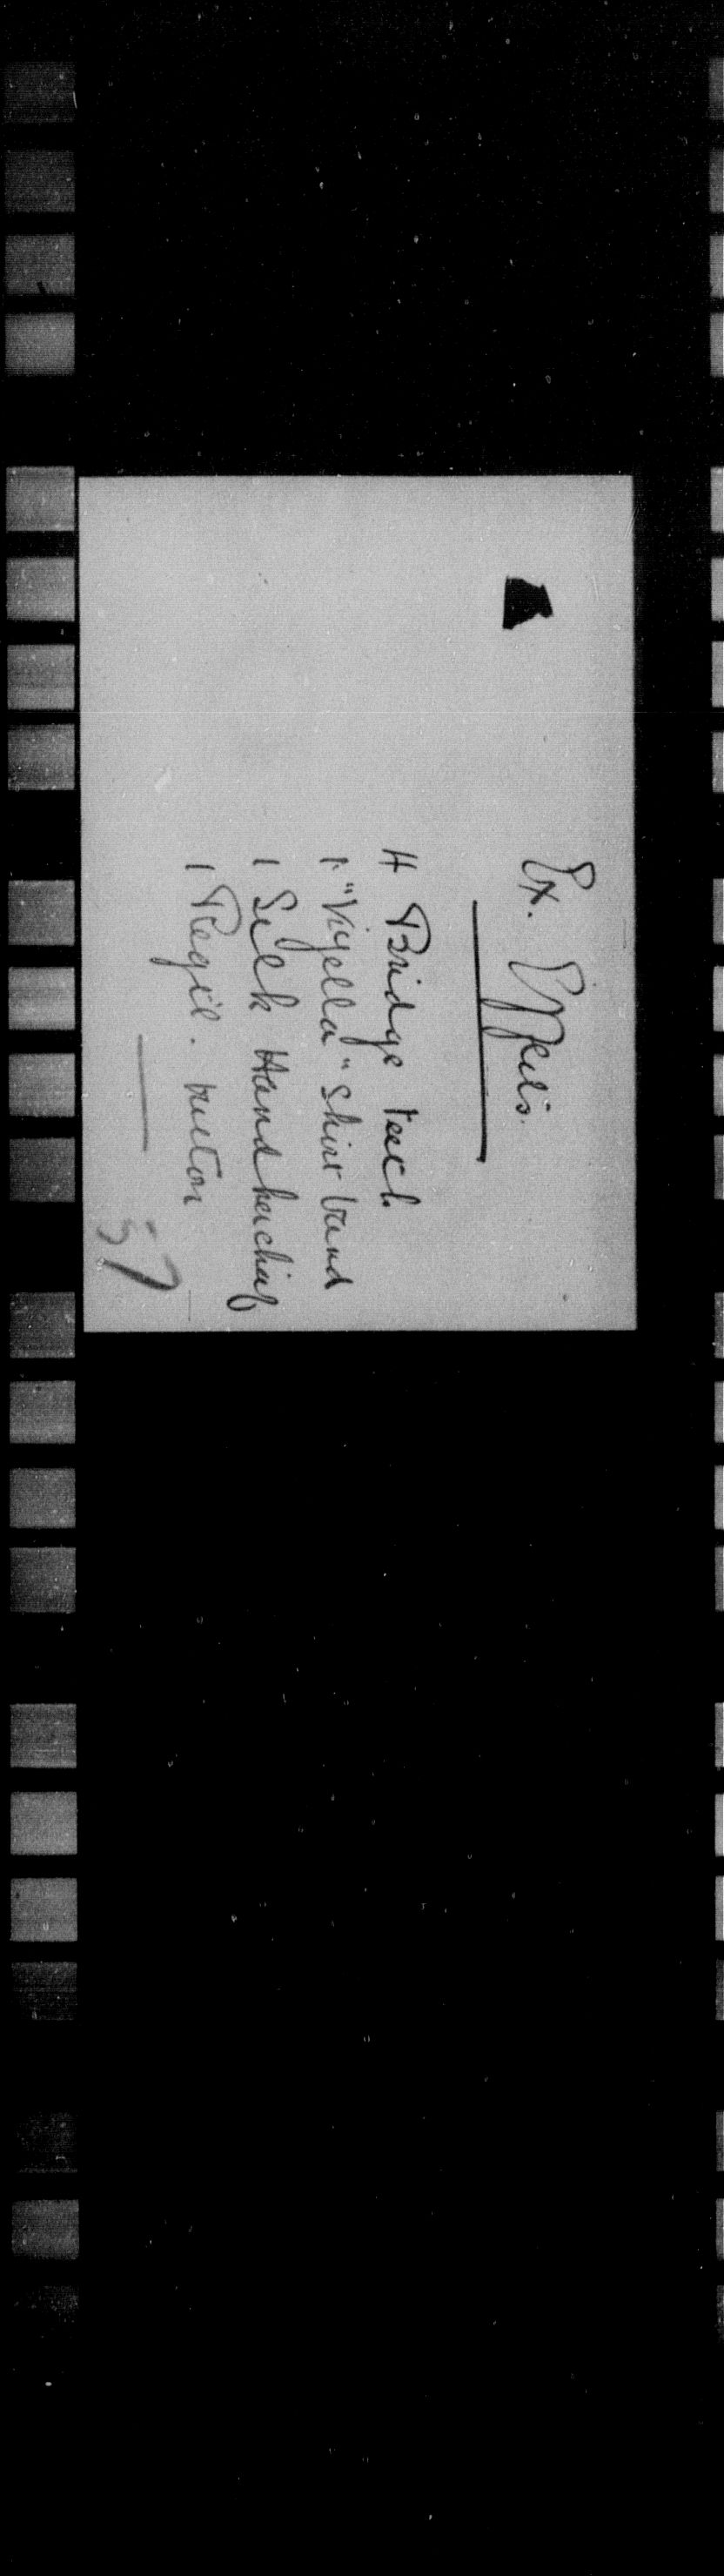 Ex. Effects.
4 Bridge teeth
1. "Viyella" Shirt band
1 Silk Handkerchief
1 Regtl. button
57